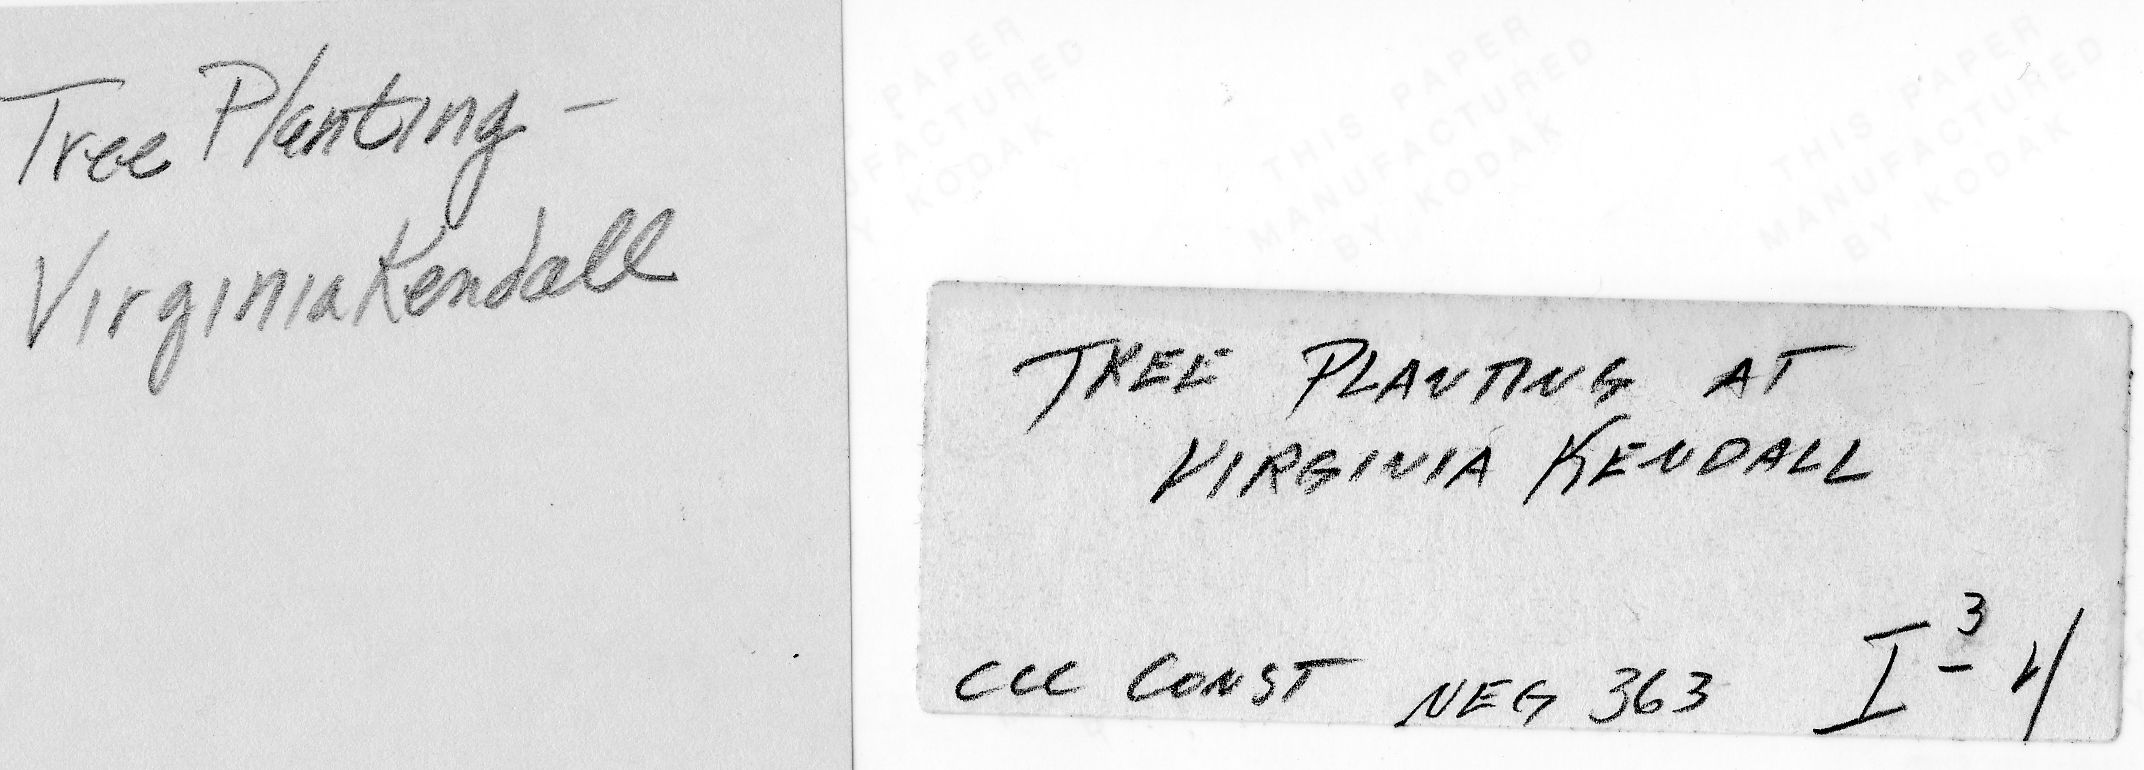 Tree Planting -
Virginia Kendall
THIS PAPER
MANUFACTURED
BY KODAK
THIS PAPER
MANUFACTURED
BY KODAK
TREE PLANTING AT
VIRGINIA KENDALL
CCC CONST NEG 363 I-3 4